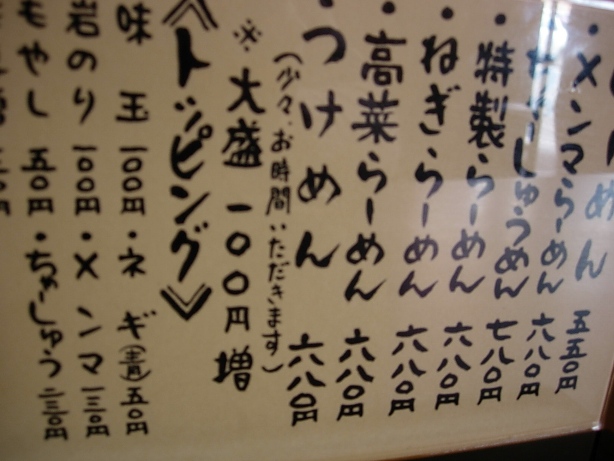 らーめん 五五〇円
・メンマらーめん 六八〇円
ちゃーしゅうめん 七八〇円
・特製らーめん 六八〇円
・ねぎらーめん 六八〇円
・高菜らーめん 六八〇円
・つけめん 六八〇円
(少々、お時間いただきます)
※大盛 一〇〇円増
《トッピング》
味玉 一〇〇円・ネギ(青)五〇円
岩のり 一〇〇円・メンマ 一三〇円
もやし 五〇円・ちゃーしゅう 二三〇円